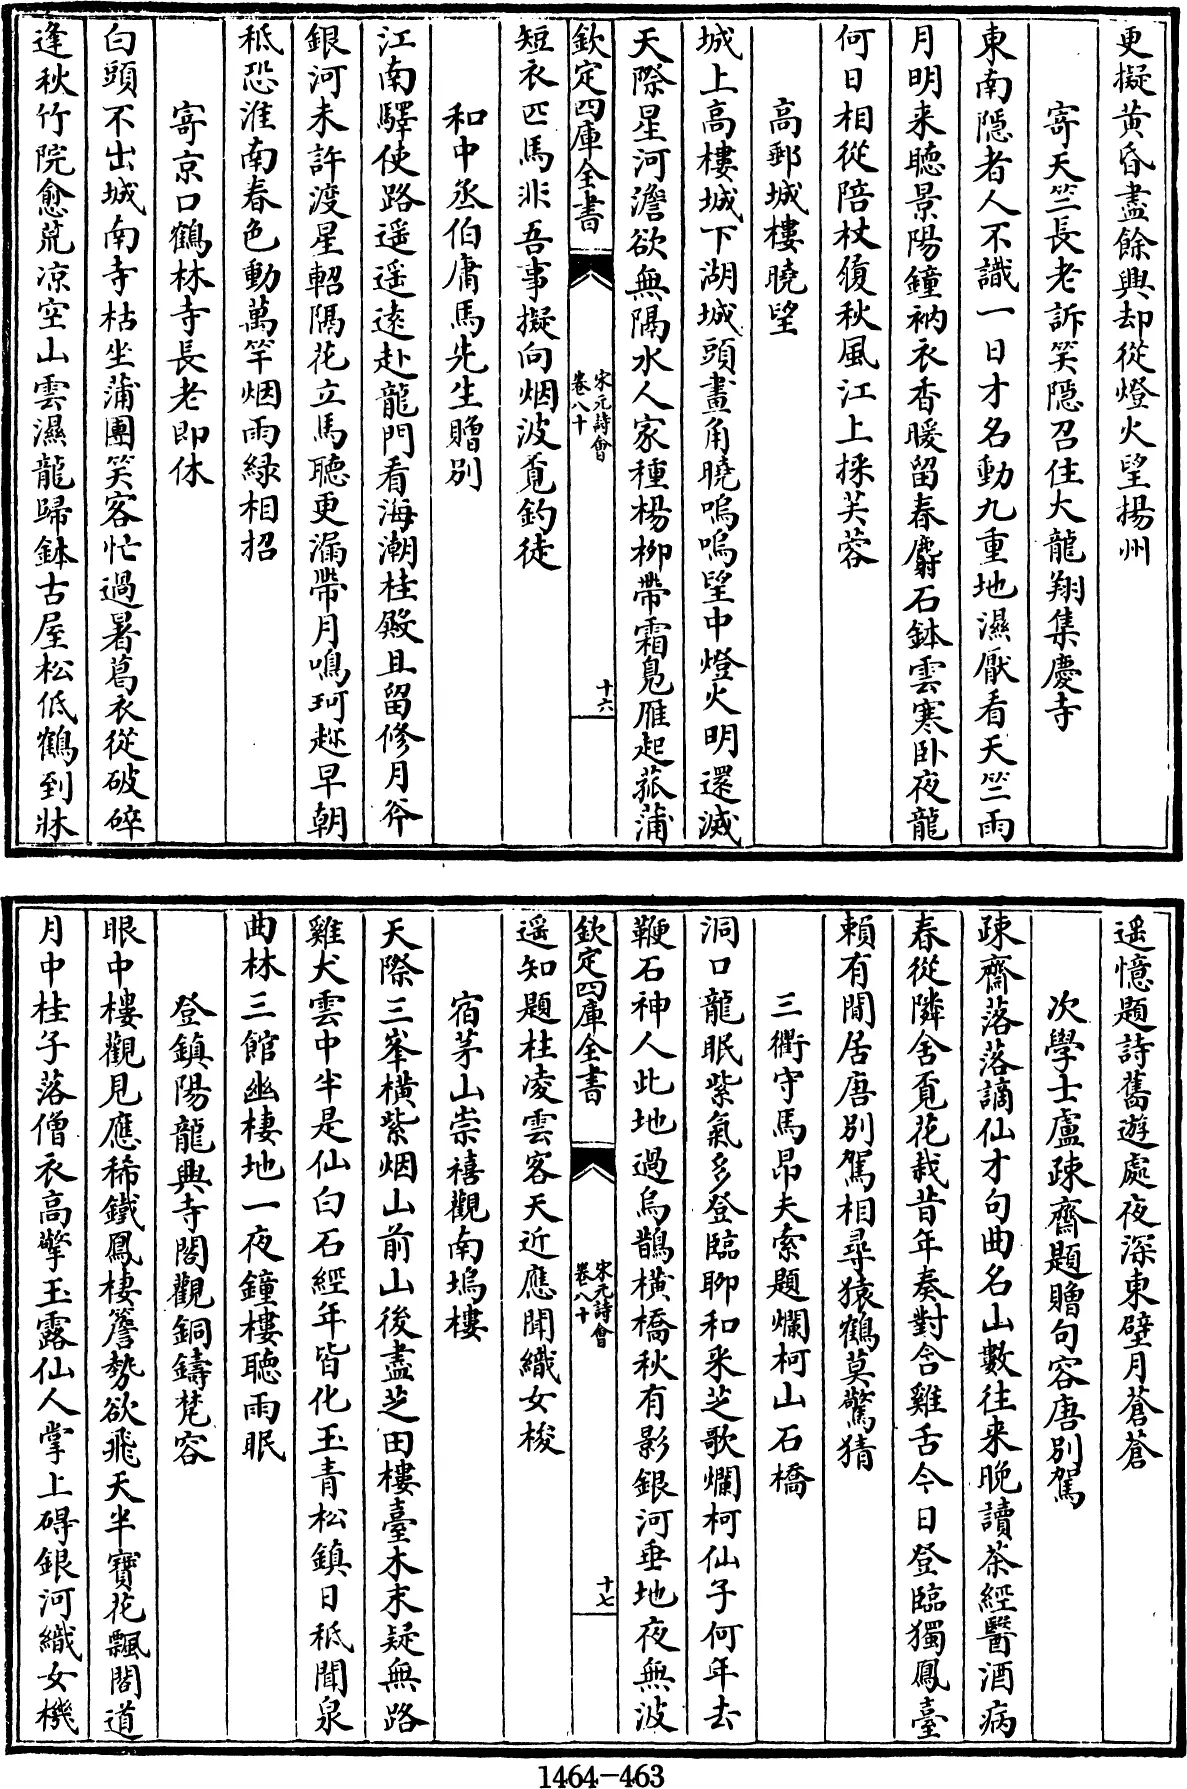 更擬黄昏盡餘興却從燈火望揚州
寄天竺長老訢笑隱召住大龍翔集慶寺
東南隱者人不識一日才名動九重地濕厭看天竺雨
月明来聽景陽鐘衲衣香暖留春麝石鉢雲寒卧夜龍
何日相從陪杖屨秋風江上採芙蓉
高郵城樓曉望
城上高樓城下湖城頭畫角曉嗚嗚望中燈火明還滅
天際星河澹欲無隔水人家種楊柳帶霜鳧雁起菰蒲
欽定四庫全書
宋元詩會
卷八十
十六
短衣匹馬非吾事擬向烟波覓釣徒
和中丞伯庸馬先生贈別
江南驛使路遥遥遠赴龍門看海潮桂殿且留修月斧
銀河未許渡星軺隔花立馬聽更漏帶月鳴珂趂早朝
秪恐淮南春色動萬竿烟雨緑相招
寄京口鶴林寺長老即休
白頭不出城南寺枯坐蒲團笑客忙過暑葛衣從破碎
逢秋竹院愈荒凉空山雲濕龍歸鉢古屋松低鶴到牀
遥憶題詩舊遊處夜深東壁月蒼蒼
次學士盧疎齋題贈句容唐別駕
疎齋落落謫仙才句曲名山數往来晚讀茶經醫酒病
春從隣舍覓花栽昔年奏對含雞舌今日登臨獨鳳臺
頼有閒居唐別駕相尋猿鶴莫驚猜
三衢守馬昂夫索題爛柯山石橋
洞口龍眠紫氣多登臨聊和采芝歌爛柯仙子何年去
鞭石神人此地過烏鵲橫橋秋有影銀河垂地夜無波
欽定四庫全書
宋元詩會
卷八十
十七
遥知題柱凌雲客天近應聞織女梭
宿茅山崇禧觀南塢樓
天際三峯橫紫烟山前山後盡芝田樓臺木末疑無路
雞犬雲中半是仙白石經年皆化玉青松鎮日秪聞泉
曲林三館幽棲地一夜鐘樓聽雨眠
登鎮陽龍興寺閣觀銅鑄梵容
眼中樓觀見應稀鐵鳳棲簷勢欲飛天半寶花飄閣道
月中桂子落僧衣高擎玉露仙人掌上碍銀河織女機
1464-463